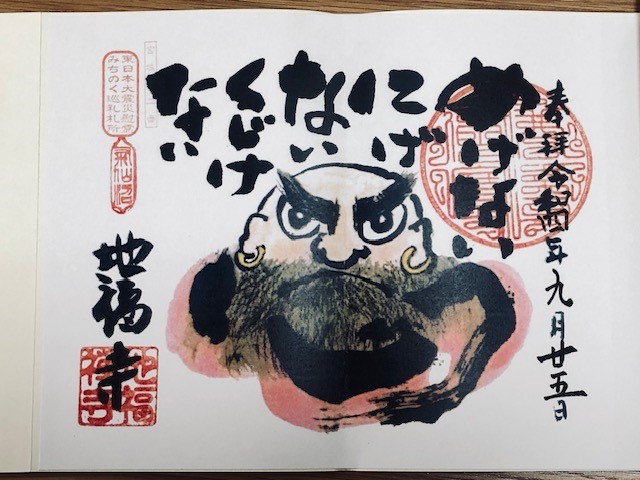 奉拝 令和四年九月廿五日
めげない
にげ
ない
くじけ
ない
地福寺
東日本大震災慰霊
みちのく巡礼札所
気仙沼
地福
禅寺